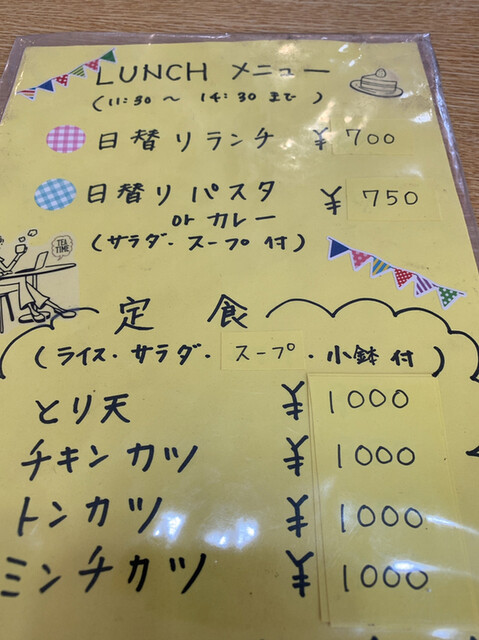 LUNCH メニュー
(11:30 〜 14:30 まで)
日替りランチ ¥700
日替り パスタ ¥750
or カレー
(サラダ・スープ 付)
TEA TIME
定食
(ライス・サラダ・スープ・小鉢 付)
とり天 ¥1000
チキンカツ ¥1000
トンカツ ¥1000
ミンチカツ ¥1000